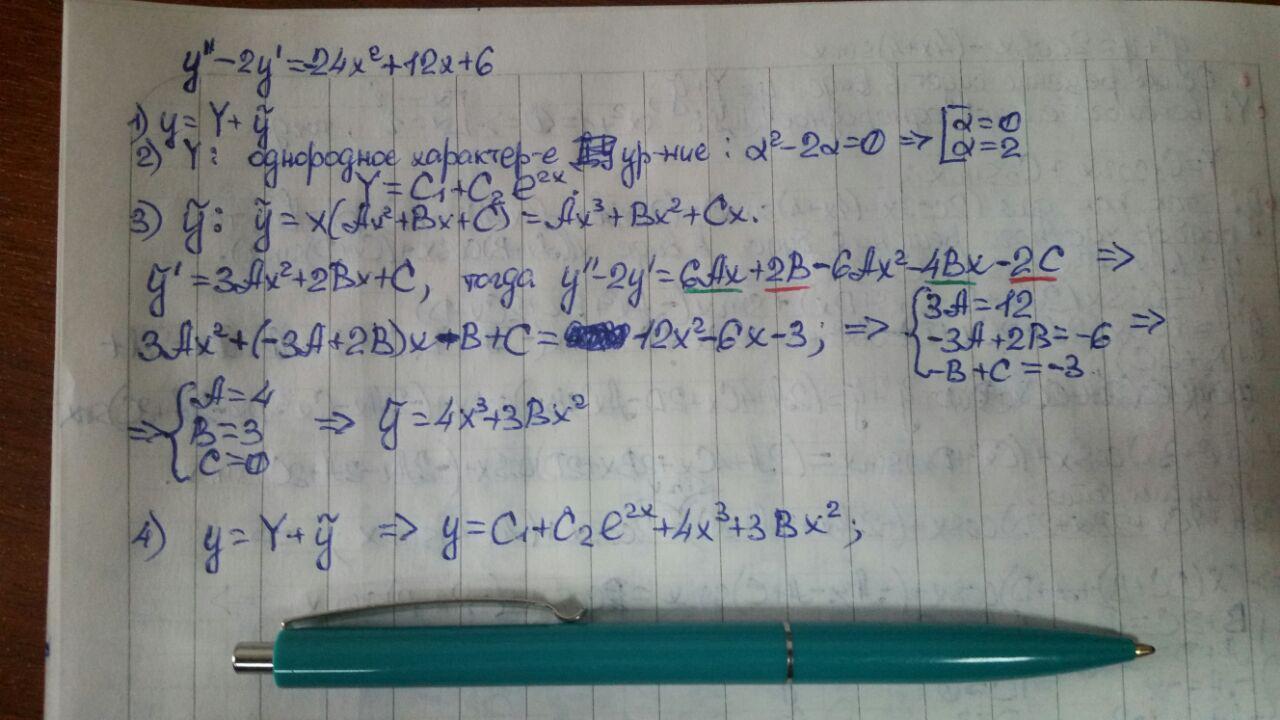 y'' - 2y' = 24x² + 12x + 6
1) y = Y + ỹ
2) Y: однородное характер-е ур-ние: α² - 2α = 0 ⇒ [α = 0
α = 2
Y = C₁ + C₂e²ˣ.
3) ỹ: ỹ = x(Ax² + Bx + C) = Ax³ + Bx² + Cx.
ỹ' = 3Ax² + 2Bx + C, тогда y'' - 2y' = 6Ax + 2B - 6Ax² - 4Bx - 2C ⇒
3Ax² + (-3A + 2B)x - B + C = -12x² - 6x - 3; ⇒ {3A = 12
-3A + 2B = -6 ⇒
-B + C = -3
⇒ {A = 4
B = 3 ⇒ ỹ = 4x³ + 3Bx²
C = 0
4) y = Y + ỹ ⇒ y = C₁ + C₂e²ˣ + 4x³ + 3Bx²;